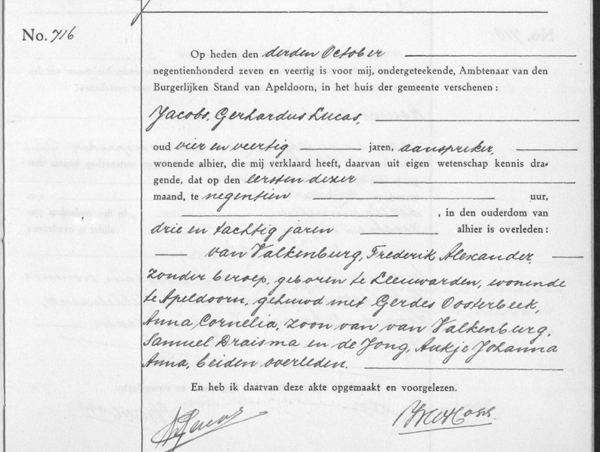 No. 716
Op heden den derden October
negentienhonderd zeven en veertig is voor mij, ondergeteekende, Ambtenaar van den
Burgerlijken Stand van Apeldoorn, in het huis der gemeente verschenen:
Jacobs, Gerhardus Lucas,
oud vier en veertig jaren, aanspreker,
wonende alhier, die mij verklaard heeft, daarvan uit eigen wetenschap kennis dra-
gende, dat op den eersten dezer
maand, te negentien uur,
, in den ouderdom van
drie en tachtig jaren alhier is overleden:
van Valkenburg, Frederik Alexander
zonder beroep, geboren te Leeuwarden, wonende
te Apeldoorn, gehuwd met Gerdes Oosterbeek,
Anna Cornelia, zoon van van Valkenburg,
Samuel Draisma en de Jong, Aukje Johanna
Anna, beiden overleden.
En heb ik daarvan deze akte opgemaakt en voorgelezen.